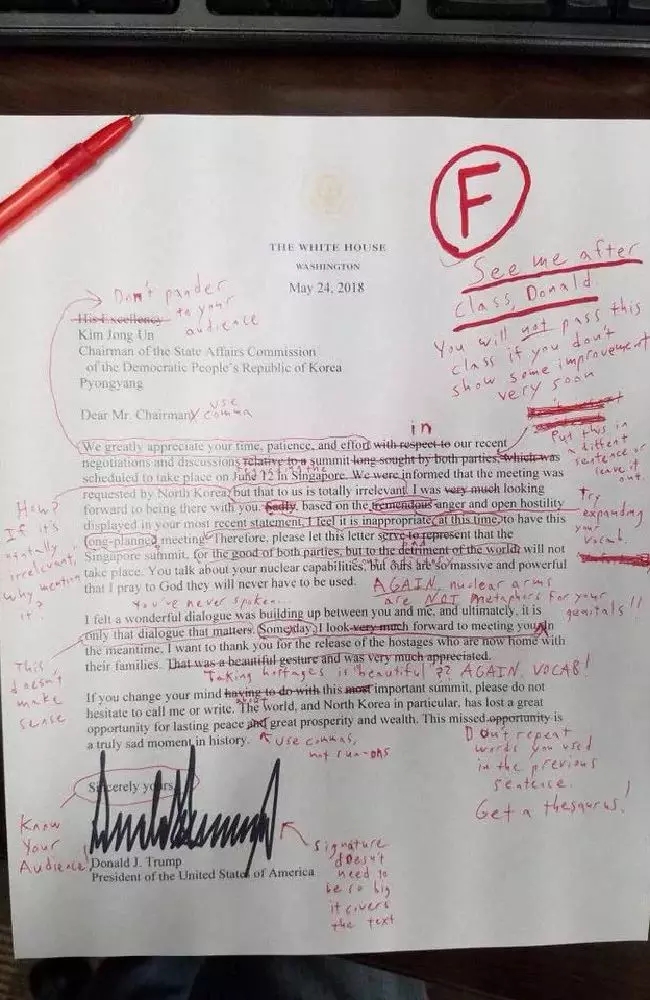 F
See me after
class, Donald.
You will not pass this
class if you don't
show some improvement
very soon
THE WHITE HOUSE
WASHINGTON
May 24, 2018
Don't pander
to your
audience
His Excellency
Kim Jong Un
Chairman of the State Affairs Commission
of the Democratic People's Republic of Korea
Pyongyang
Dear Mr. Chairman
use
comma
in
We greatly appreciate your time, patience, and effort with respect to our recent
negotiations and discussions relative to a summit long sought by both parties, which was
scheduled to take place on June 12 in Singapore. We were informed that the meeting was
requested by North Korea, but that to us is totally irrelevant. I was very much looking
forward to being there with you. Sadly, based on the tremendous anger and open hostility
displayed in your most recent statement, I feel it is inappropriate, at this time, to have this
long-planned meeting. Therefore, please let this letter serve to represent that the
Singapore summit, for the good of both parties, but to the detriment of the world, will not
take place. You talk about your nuclear capabilities, but ours are so massive and powerful
that I pray to God they will never have to be used.
Put this in
a
sentence or
leave it
out.
Try
expanding
your
vocab.
How?
If it's
totally
irrelevant,
why mention
it?
AGAIN, nuclear arms
are NOT metaphors for your
genitals!!
You've never spoken...
I felt a wonderful dialogue was building up between you and me, and ultimately, it is
only that dialogue that matters. Some day, I look very much forward to meeting you. In
the meantime, I want to thank you for the release of the hostages who are now home with
their families. That was a beautiful gesture and was very much appreciated.
This
doesn't
make
sense
Taking hostages is beautiful?? AGAIN, VOCAB!
If you change your mind having to do with this most important summit, please do not
hesitate to call me or write. The world, and North Korea in particular, has lost a great
opportunity for lasting peace and great prosperity and wealth. This missed opportunity is
a truly sad moment in history.
Use commas,
not run-ons
Don't repeat
words you used
in the previous
sentence.
Get a thesaurus!
Sincerely yours,
Know
Your
Audience!
Donald J. Trump
President of the United States of America
Signature
doesn't
need to
be so big
it covers
the text